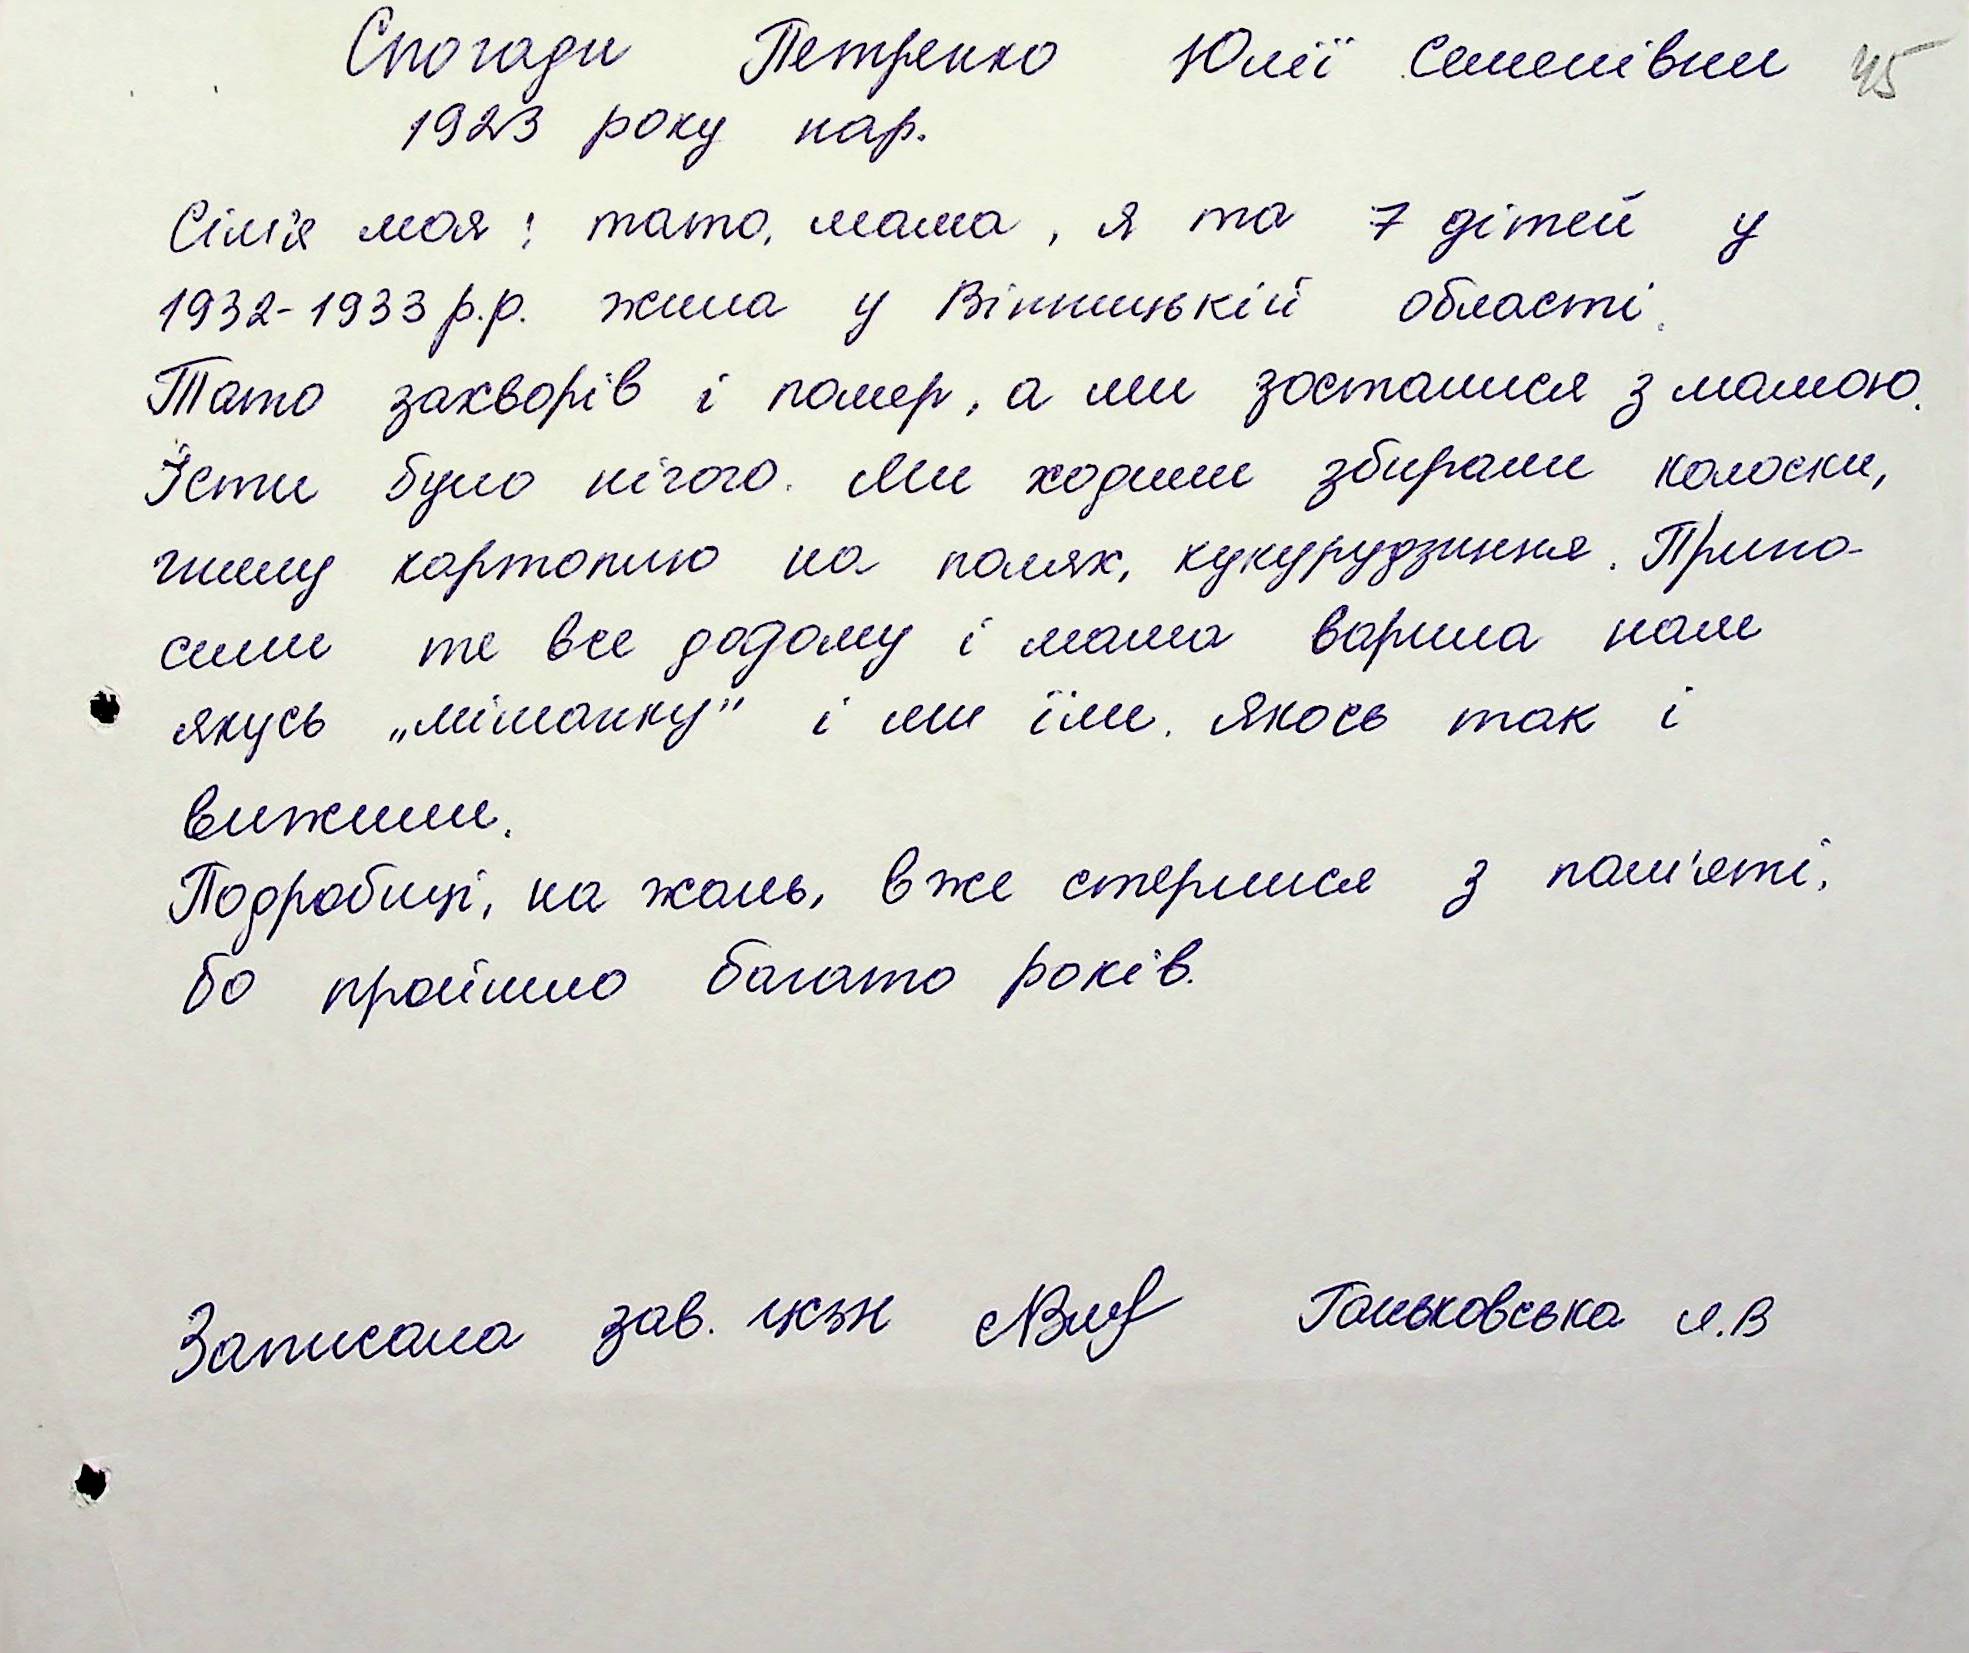 Спогади Петренко Юлії Семенівни 45
1923 року нар.
Сім'я моя: тато, мама, я та 7 дітей у
1932-1933 р.р. жила у Вінницькій області.
Тато захворів і помер, а ми зосталися з мамою.
Їсти було нічого. Ми ходили збирали колоски,
гнилу картоплю на полях, кукурудзиння. Прино-
сили те все додому і мама варила нам
якусь „мішанку" і ми їли. Якось так і
вижили.
Подробиці, на жаль, вже стерлися з пам'яті,
бо пройшло багато років.
Записала зав. Ганьковська Л.В